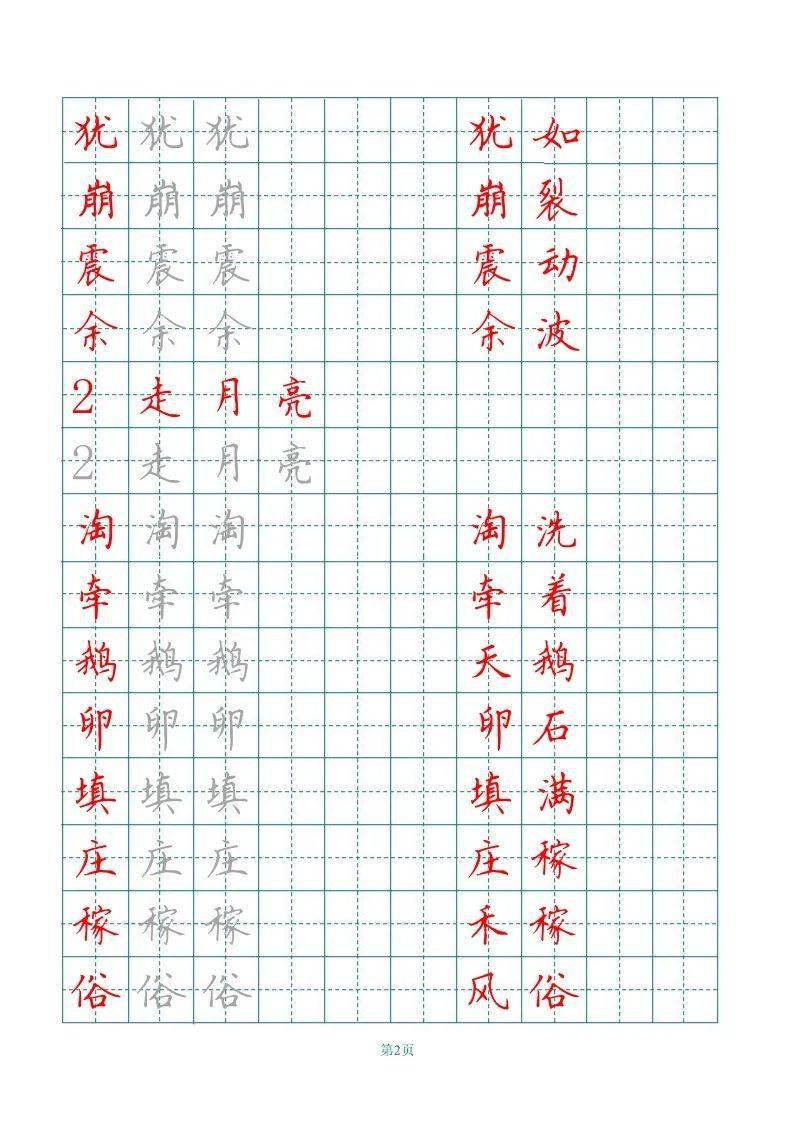 犹 犹 犹 犹 如
崩 崩 崩 崩 裂
震 震 震 震 动
余 余 余 余 波
2 走 月 亮
2 走 月 亮
淘 淘 淘 淘 洗
牵 牵 牵 牵 着
鹅 鹅 鹅 天 鹅
卵 卵 卵 卵 石
填 填 填 填 满
庄 庄 庄 庄 稼
稼 稼 稼 禾 稼
俗 俗 俗 风 俗
第2页